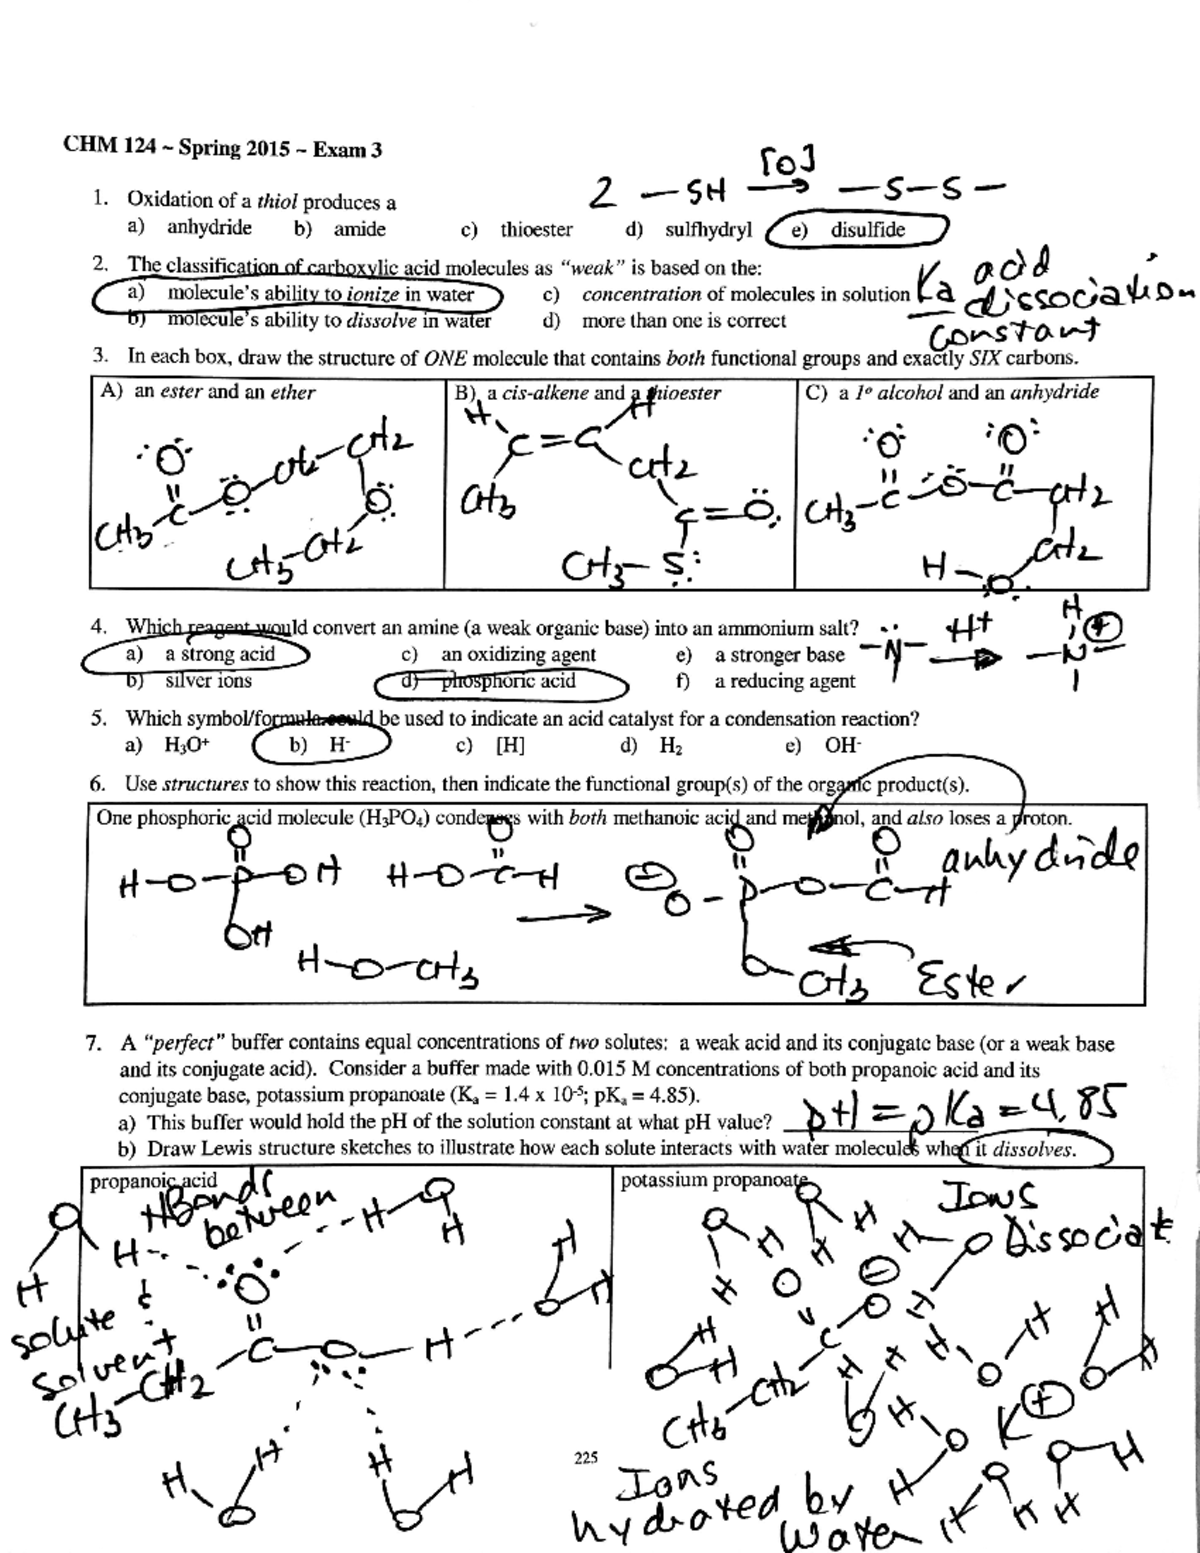 CHM 124 ~ Spring 2015 ~ Exam 3
[O]
2 —SH → —S—S—
1. Oxidation of a thiol produces a
a) anhydride b) amide c) thioester d) sulfhydryl e) disulfide
2. The classification of carboxylic acid molecules as “weak” is based on the:
a) molecule’s ability to ionize in water c) concentration of molecules in solution
b) molecule’s ability to dissolve in water d) more than one is correct
Ka acid
dissociation
constant
3. In each box, draw the structure of ONE molecule that contains both functional groups and exactly SIX carbons.
A) an ester and an ether B) a cis-alkene and a thioester C) a 1º alcohol and an anhydride
4. Which reagent would convert an amine (a weak organic base) into an ammonium salt?
a) a strong acid c) an oxidizing agent e) a stronger base
b) silver ions d) phosphoric acid f) a reducing agent
H+
5. Which symbol/formula could be used to indicate an acid catalyst for a condensation reaction?
a) H₃O⁺ b) H⁻ c) [H] d) H₂ e) OH⁻
6. Use structures to show this reaction, then indicate the functional group(s) of the organic product(s).
One phosphoric acid molecule (H₃PO₄) condenses with both methanoic acid and methanol, and also loses a proton.
anhydride
H—O—CH3
Ester
7. A “perfect” buffer contains equal concentrations of two solutes: a weak acid and its conjugate base (or a weak base
and its conjugate acid). Consider a buffer made with 0.015 M concentrations of both propanoic acid and its
conjugate base, potassium propanoate (Kₐ = 1.4 x 10⁻⁵; pKₐ = 4.85).
a) This buffer would hold the pH of the solution constant at what pH value? pH = pKa = 4.85
b) Draw Lewis structure sketches to illustrate how each solute interacts with water molecules when it dissolves.
propanoic acid
HBonds
between
solute
&
solvent
potassium propanoate
Ions
Dissociate
225
Ions
hydrated by
water